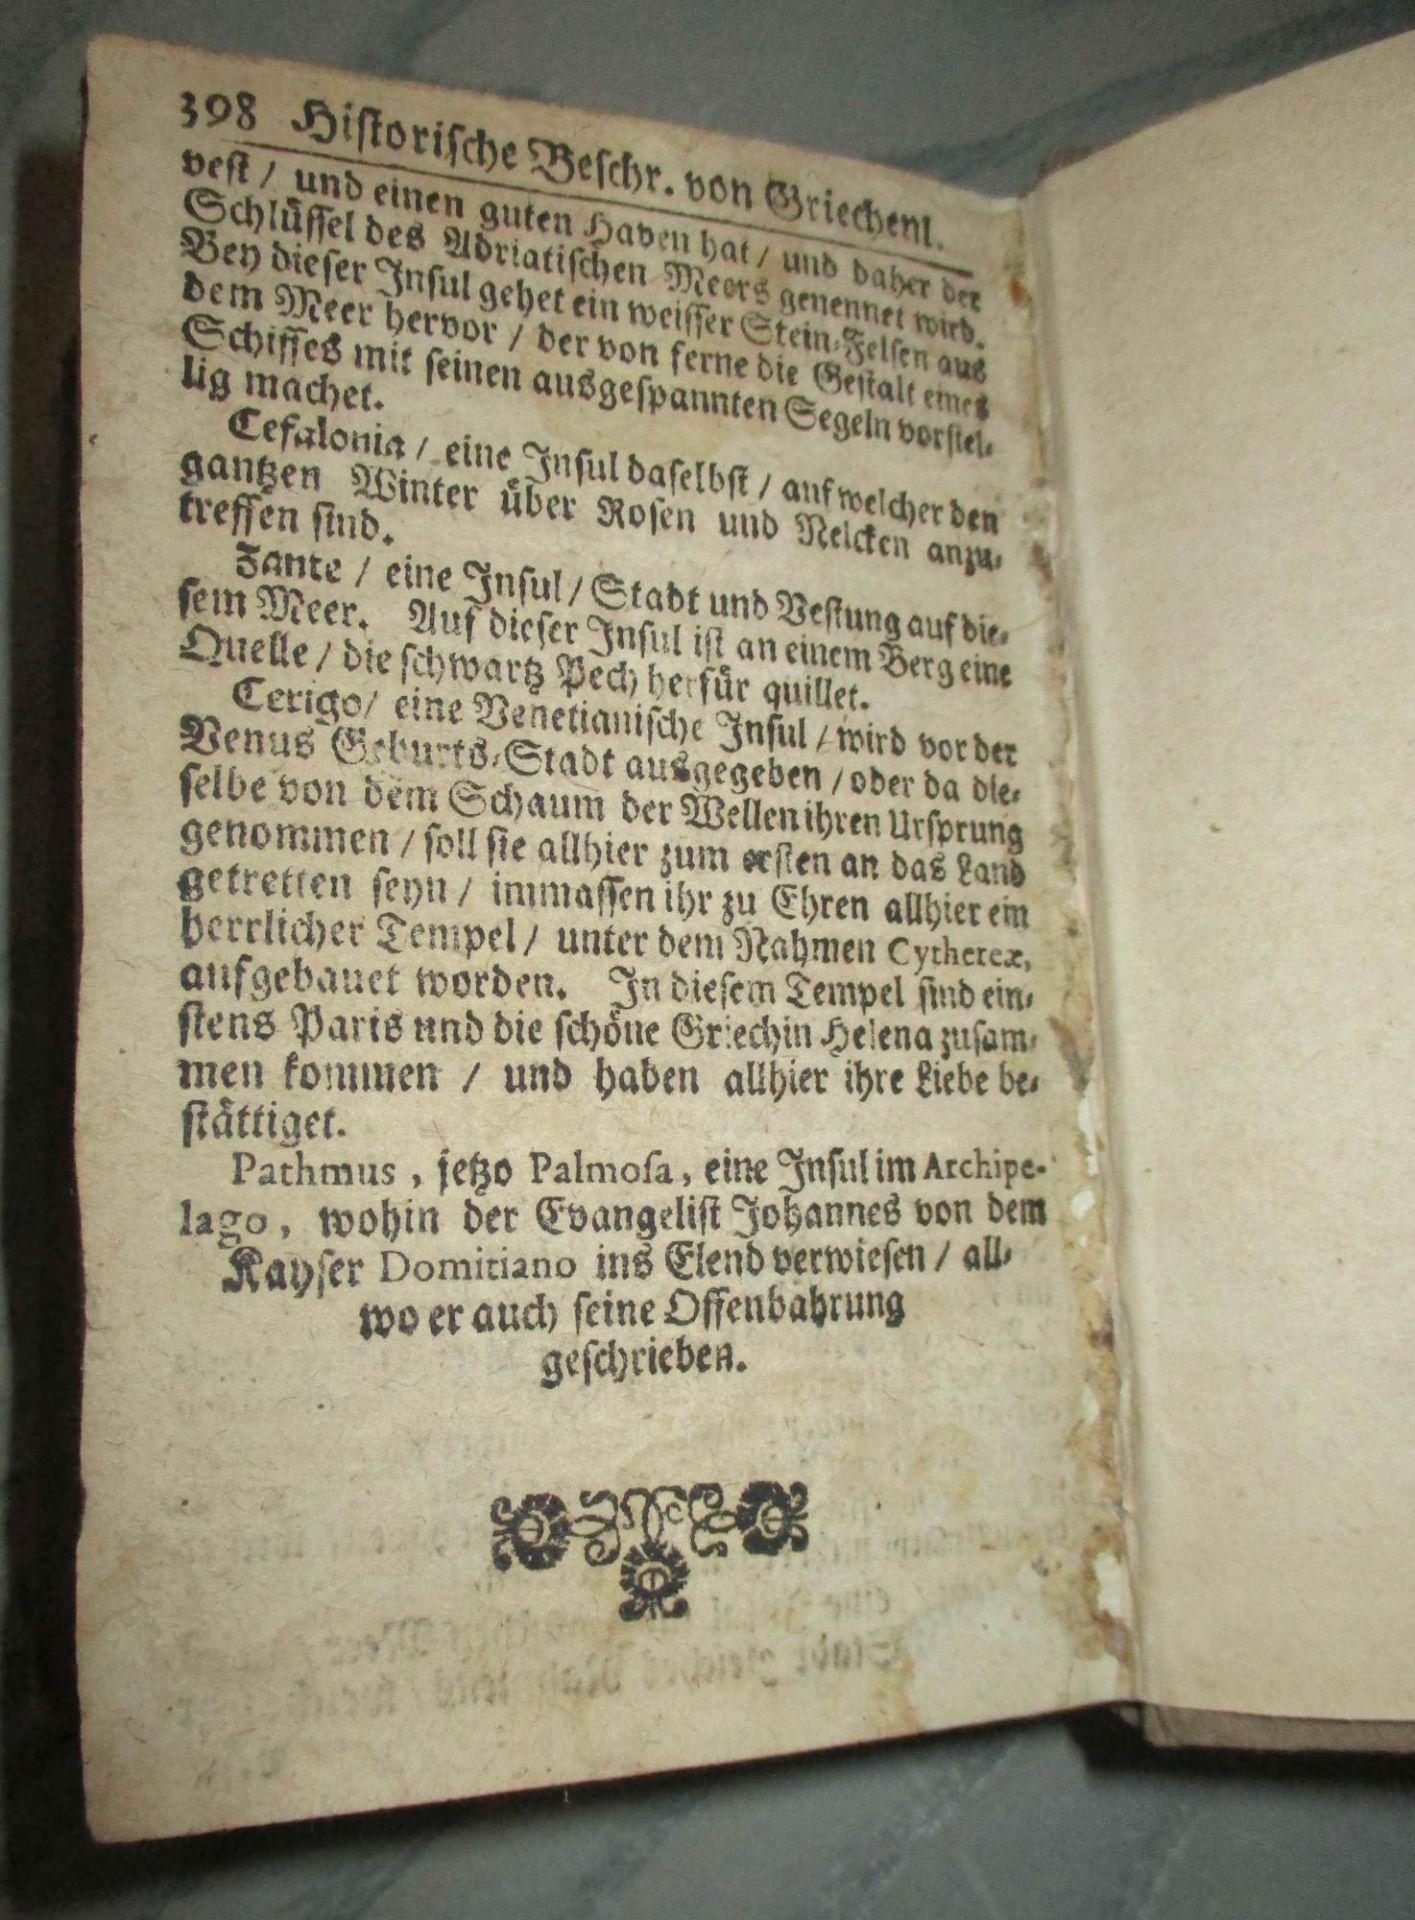 398 Hiſtoriſche Beſchr. von Griechenl.
veſt / und einen guten Haven hat / und daher der
Schlüſſel des Adriatiſchen Meers genennet wird.
Bey dieſer Inſul gehet ein weiſſer Stein-Felſen aus
dem Meer hervor / der von ferne die Geſtalt eines
Schiffes mit ſeinen ausgeſpannten Segeln vorſtel-
lig machet.
Cefalonia / eine Inſul daſelbſt / auf welcher den
gantzen Winter über Roſen und Nelcken anzu-
treffen ſind.
Zante / eine Inſul / Stadt und Veſtung auf die-
ſem Meer. Auf dieſer Inſul iſt an einem Berg eine
Quelle / die ſchwartz Pech herfür quillet.
Cerigo / eine Venetianiſche Inſul / wird vor der
Venus Geburts-Stadt ausgegeben / oder da die-
ſelbe von dem Schaum der Wellen ihren Urſprung
genommen / ſoll ſie allhier zum erſten an das Land
getretten ſeyn / immaſſen ihr zu Ehren allhier ein
herrlicher Tempel / unter dem Nahmen Cythereæ,
aufgebauet worden. In dieſem Tempel ſind ein-
ſtens Paris und die ſchöne Griechin Helena zuſam-
men kommen / und haben allhier ihre Liebe be-
ſtättiget.
Pathmus, jetzo Palmoſa, eine Inſul im Archipe-
lago, wohin der Evangeliſt Johannes von dem
Kayſer Domitiano ins Elend verwieſen / all-
wo er auch ſeine Offenbahrung
geſchrieben.